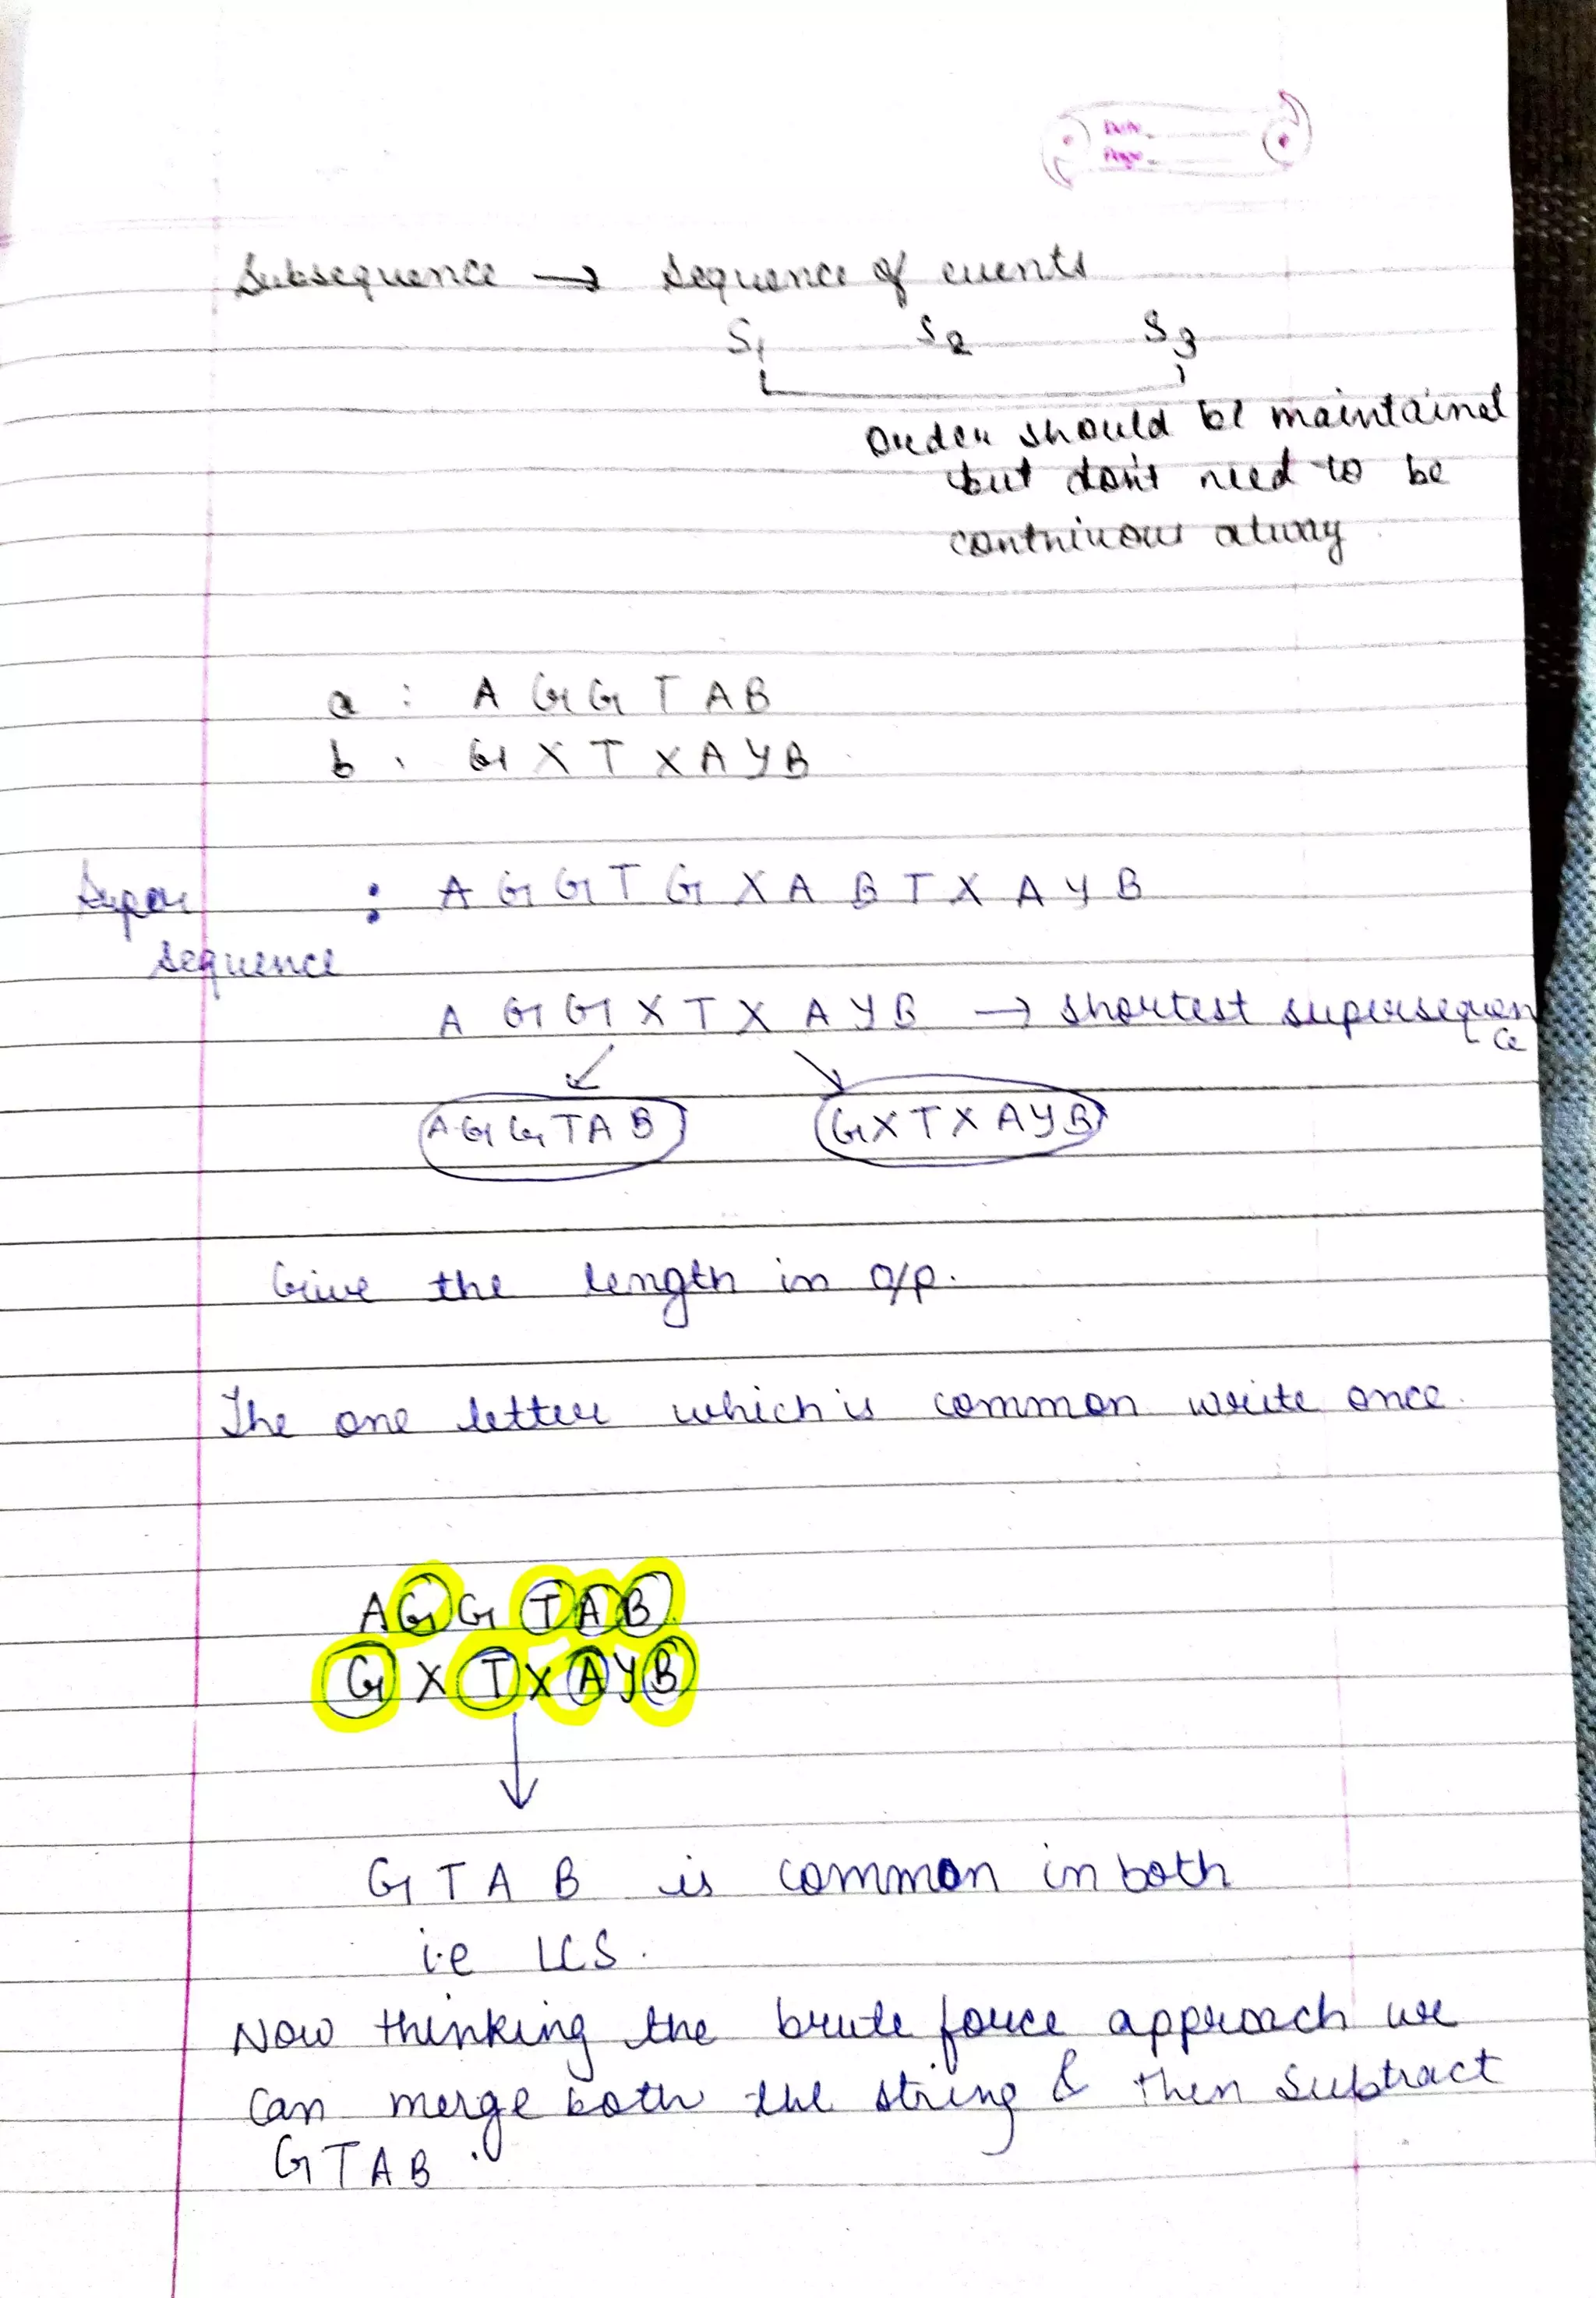 Date
Page
Subsequence → sequence of events
S1 S2 S3
Order should be maintained
but don't need to be
a : A G G T A B
b : G X T X A Y B
Super : A G G T G X A B T X A Y B
sequence
A G G X T X A Y B → shortest supersequence
AGGTAB GXTXAYB
Give the length in o/p.
The one letter which is common write once.
A G G T A B
G X T X A Y B
G T A B is common in both
i.e LCS.
Now thinking the brute force approach we
can merge both the string & then subtract
GTAB.